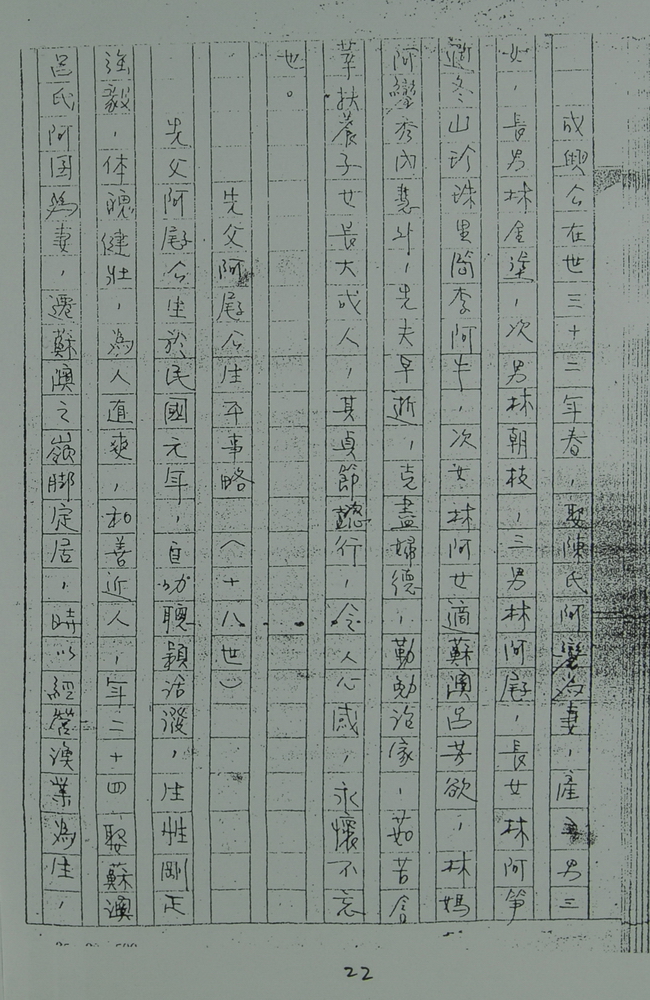 成興公在世三十二年春，娶陳氏阿蠻為妻，產男三
女，長男林金塗，次男林朝枝，三男林阿尾，長女林阿笋
適冬山珍珠里簡李阿牛，次女林阿女適蘇澳呂芳欲，林媽
阿蠻秀內慧外，先夫早逝，克盡婦德，勤勉治家，茹苦含
莘扶養子女長大成人，其貞節懿行，令人心感，永懷不忘
也。
先父阿尾公生平事略（十八世）
先父阿尾公生於民國元年，自幼聰穎活潑，生性剛正
強毅，体魄健壯，為人直爽，和善近人，年二十四娶蘇澳
呂氏阿国為妻，遷蘇澳之嶺脚定居，時以經營漁業為生，
22